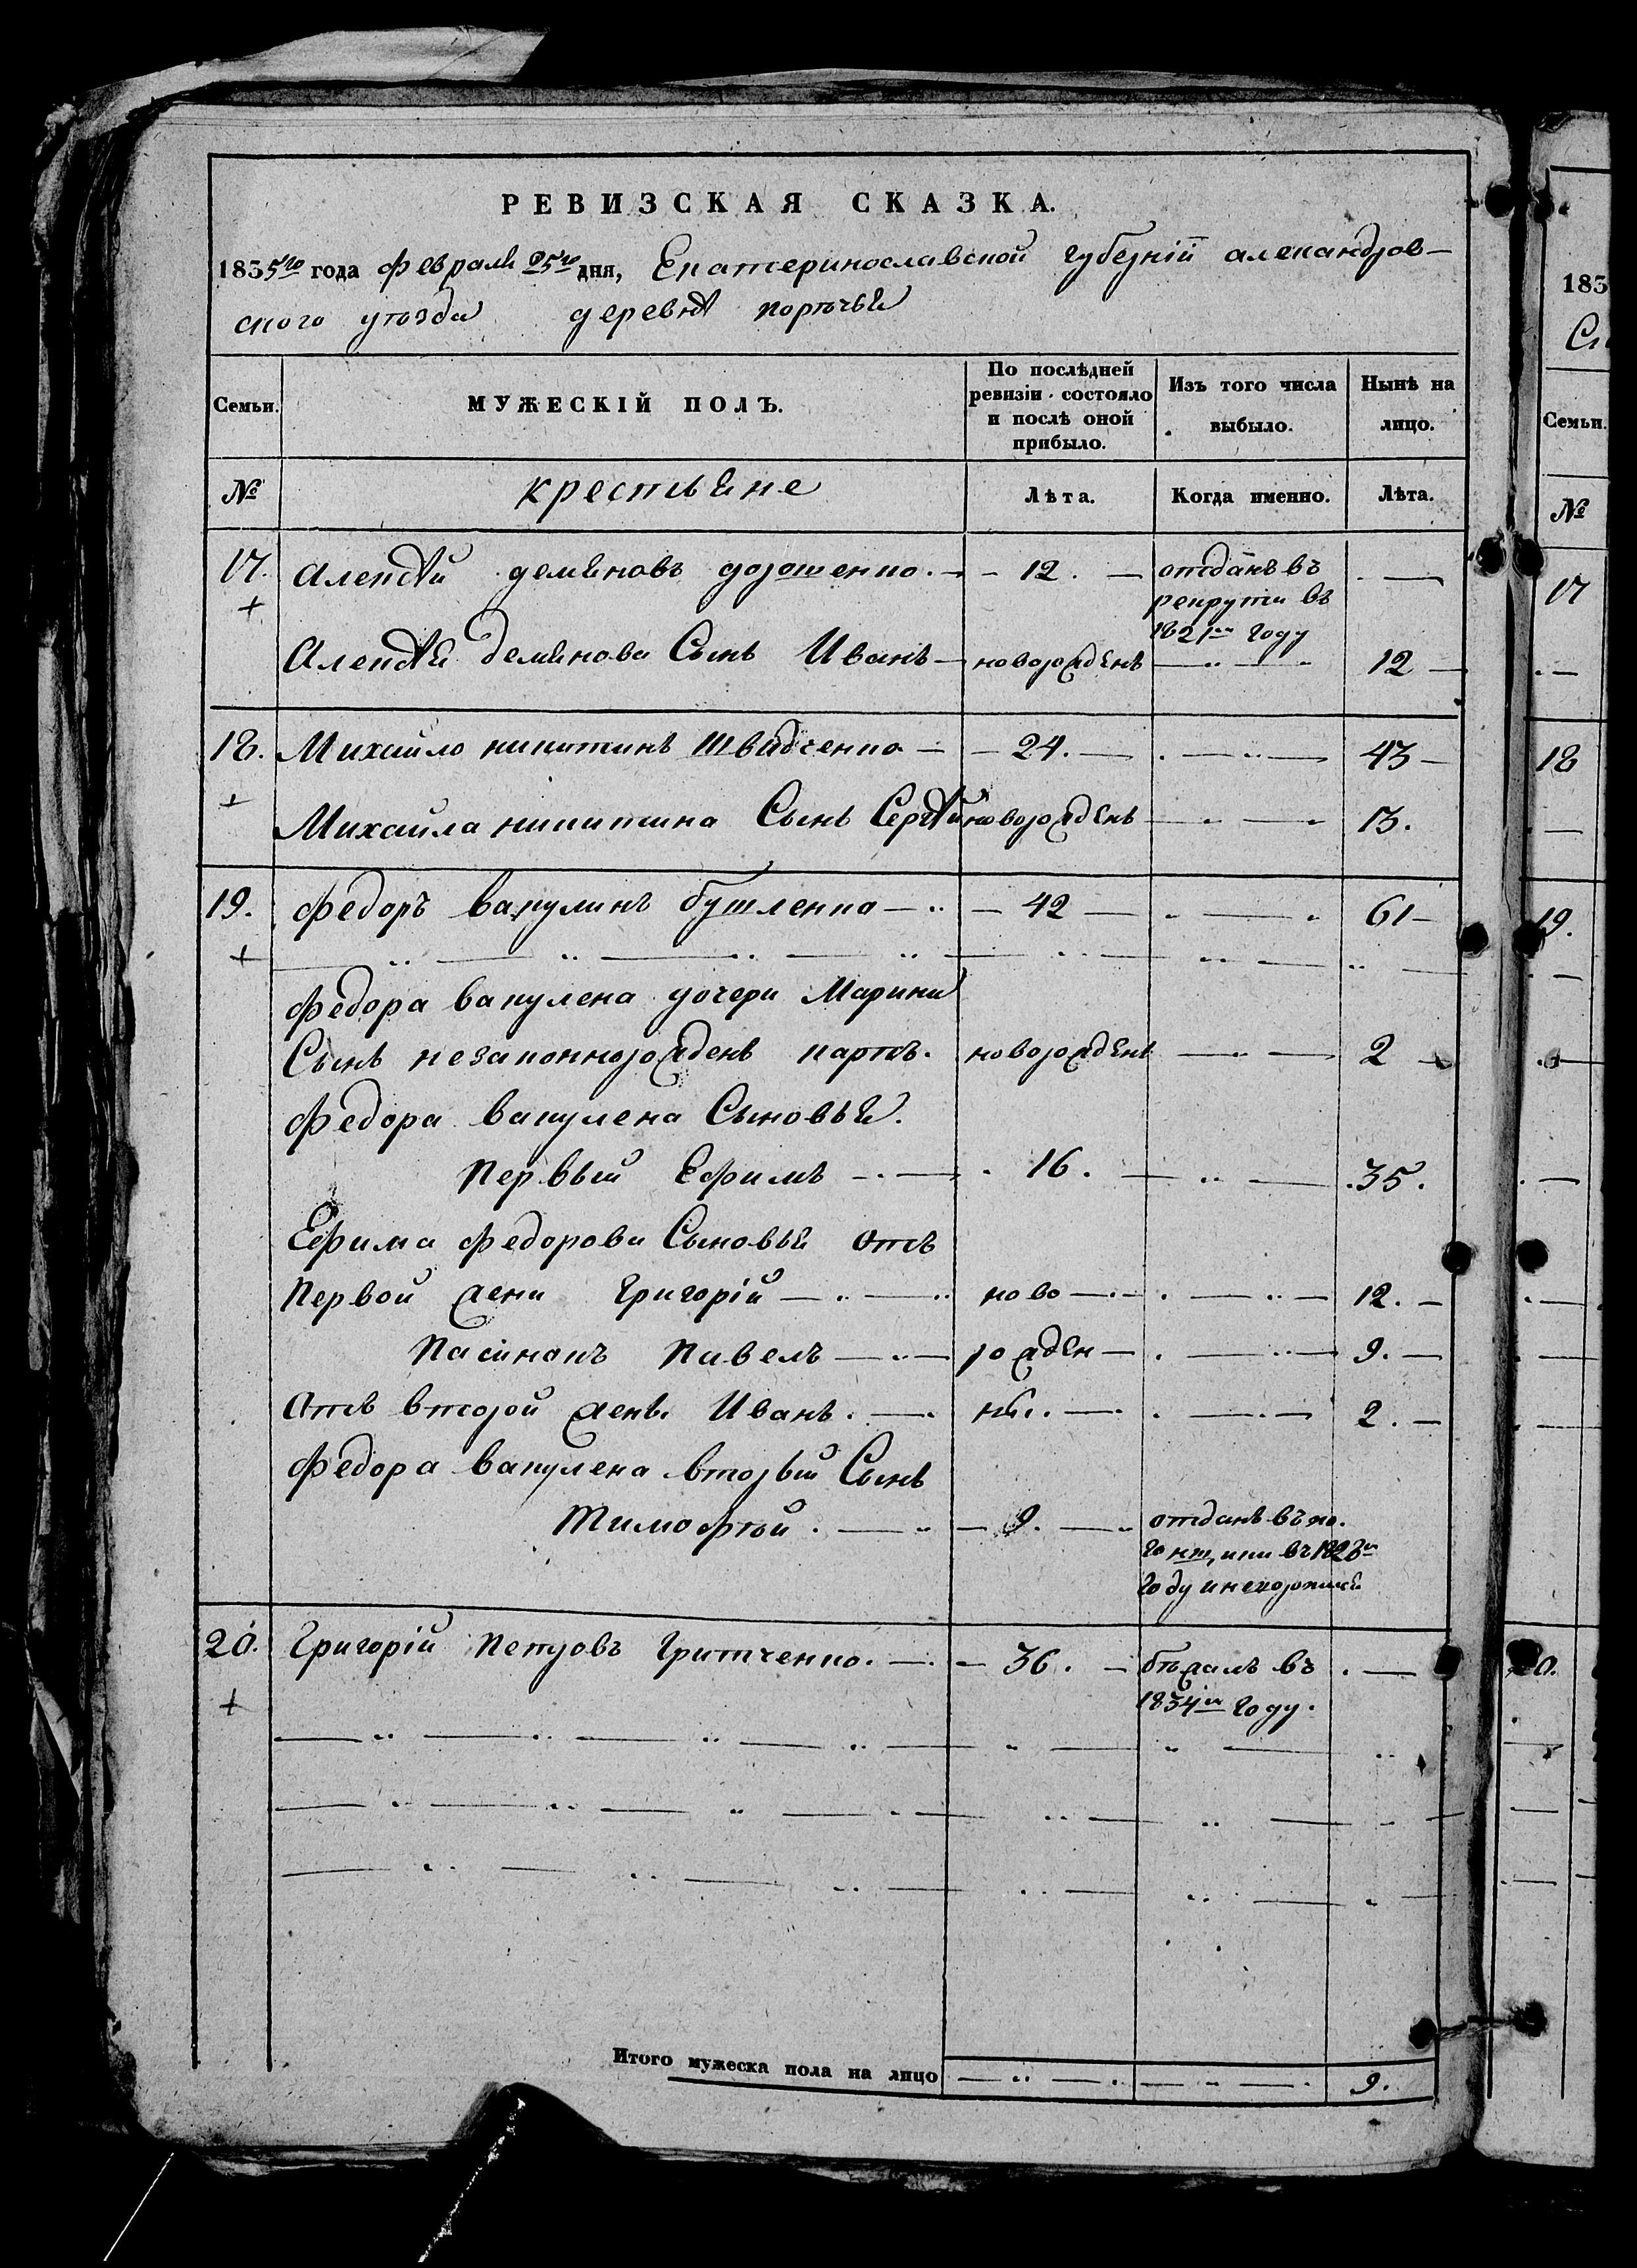 РЕВИЗСКАЯ СКАЗКА.
1835го года февраля 25го дня, Екатеринославской губернiи александров-
ского уѣзда деревнѣ порѣчья
Семьи.
МУЖЕСКІЙ ПОЛЪ.
По послѣдней ревизіи состояло и послѣ оной прибыло.
Изъ того числа выбыло.
Нынѣ на лицо.
№
крестьяне
Лѣта.
Когда именно.
Лѣта.
17. Алексѣй демяновъ дорошенко. 12. отданъ въ
рекруты въ
1821м году
Алексѣя демянова Сынъ Иванъ новорожденъ 12
18. Михайло никитинъ Швидченко 24. 43
Михайла никитина Сынъ Сергѣй новорожденъ 13.
19. федоръ вакулинъ бутленко 42 61
федора вакулена дочери Марины
Сынъ незаконнорожденъ карпъ. новорожденъ 2
федора вакулена Сыновья.
первый Ефимъ 16. 35.
Ефима федорова Сыновья отъ
первой жены Григорій ново 12.
пасинокъ павелъ рожден 9.
отъ второй жены Иванъ. ны. 2.
федора вакулена вторый Сынъ
тимофѣй. 9. отданъ въ
году
20. Григорій петровъ Гритченко. 36. бѣжалъ въ
1834м году.
Итого мужеска пола на лицо 9.
183
Семьи.
№
17
18
19.
20.